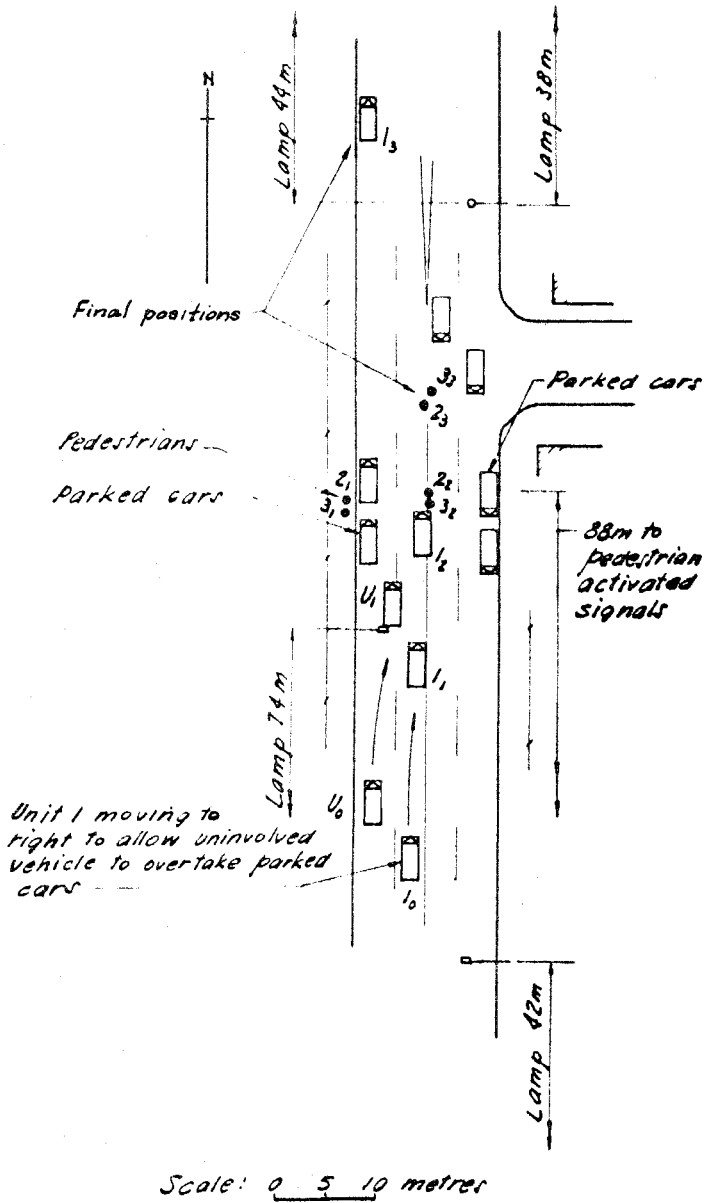 Lamp 44m
Lamp 38m
N
1₃
Final positions
3₃
2₃
Parked cars
Pedestrians
2₁
2₂
Parked cars
3₁
3₂
1₂
88m to
pedestrian
activated
signals
U₁
1₁
Lamp 74m
U₀
Unit 1 moving to
right to allow uninvolved
vehicle to overtake parked
cars
1₀
Lamp 42m
Scale: 0 5 10 metres